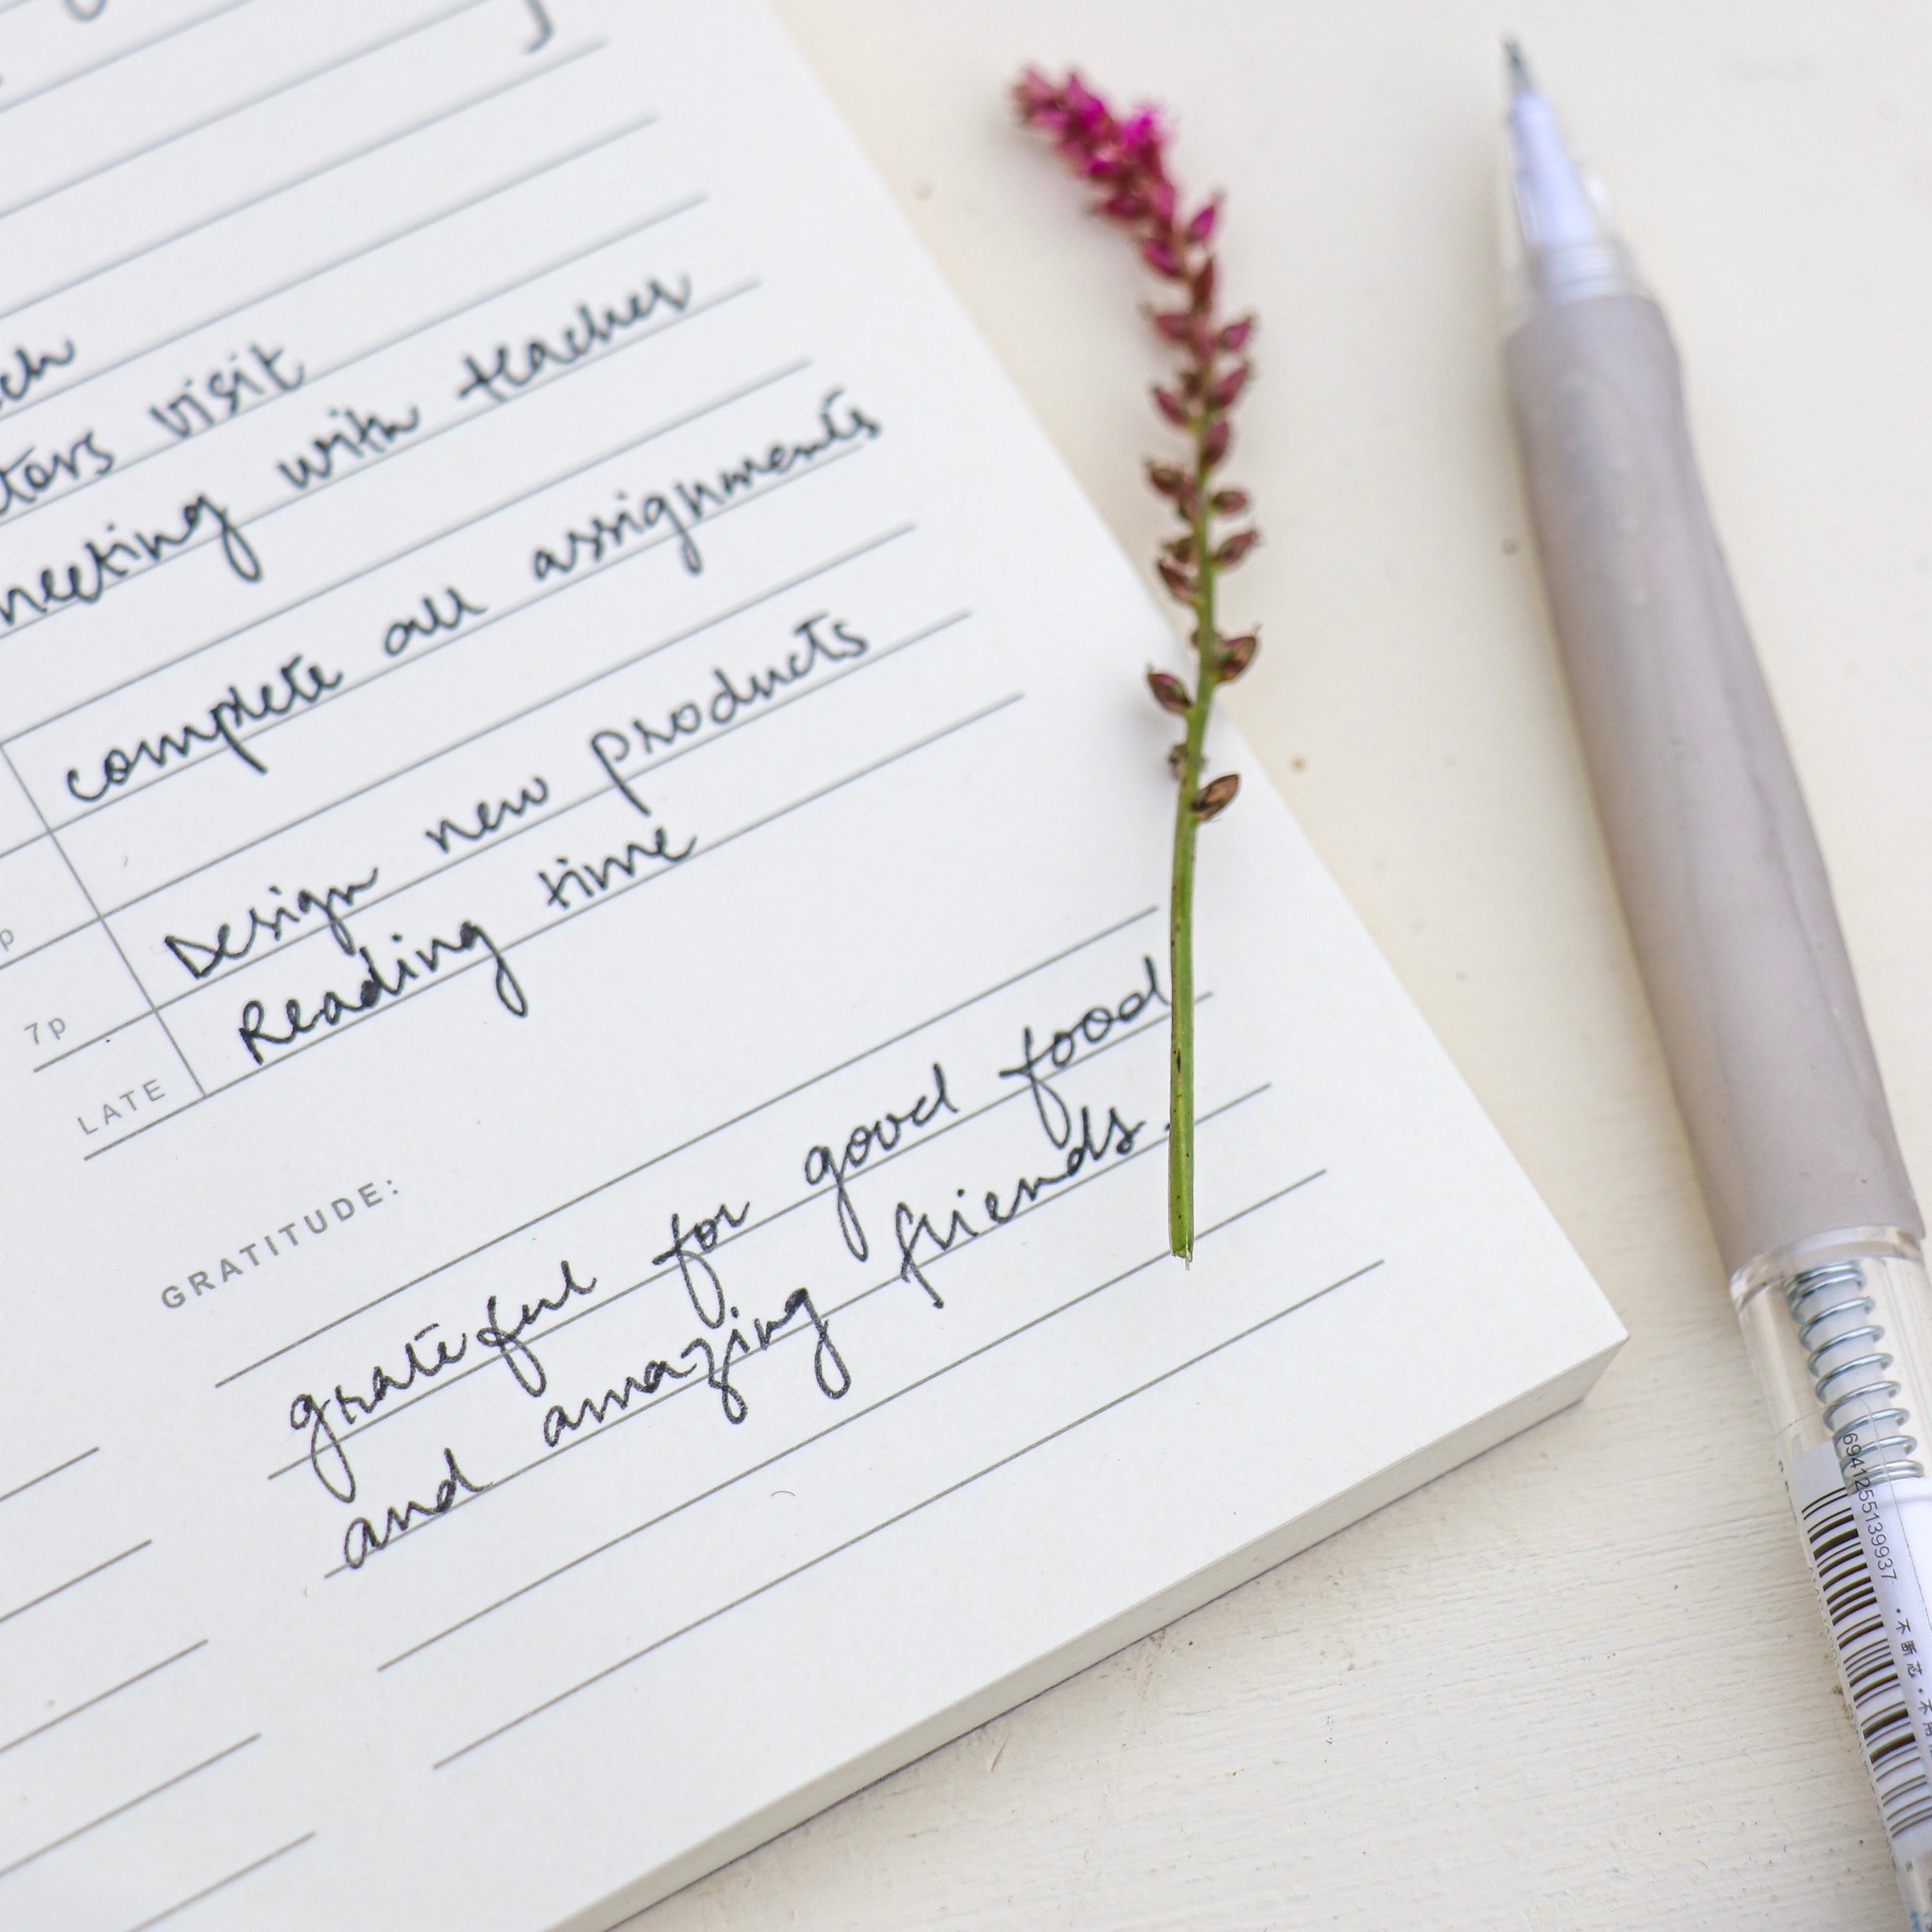 ch
tors visit
meeting with teacher
complete all assignments
p
Design new products
7p
Reading time
LATE
GRATITUDE:
grateful for good food
and amazing friends.
6941255139937
·不断芯·不